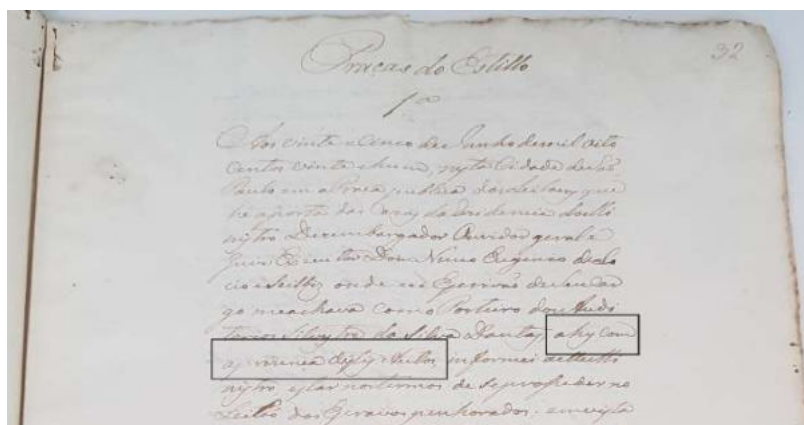 Praças do Estillo
32
1ª
Aos vinte e Cinco de Junho de mil oito
Centos vinte e hum, nesta Cidade de São
Paulo em a Praça publica dos Leiloens que
he aporta das Cazas da Rezidencia do Mi
nistro Dezembargador Ouvidor geral e
Juiz Dom Nuno Eugenio de Lo
cio e Seilbz onde eu Escrivão de seu Car
go me achava com o Porteiro dos Audi
torios Silvestre da Silva Dantas, ahy com
informei ao Mi
nistro estar nos termos de se proceder no
Leilão dos Escravos penhorados; em vista